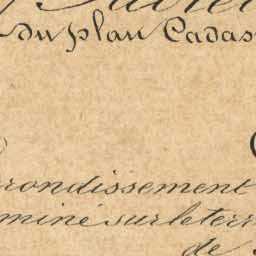 du plan Cadas
rondissement
miné sur le terr
de